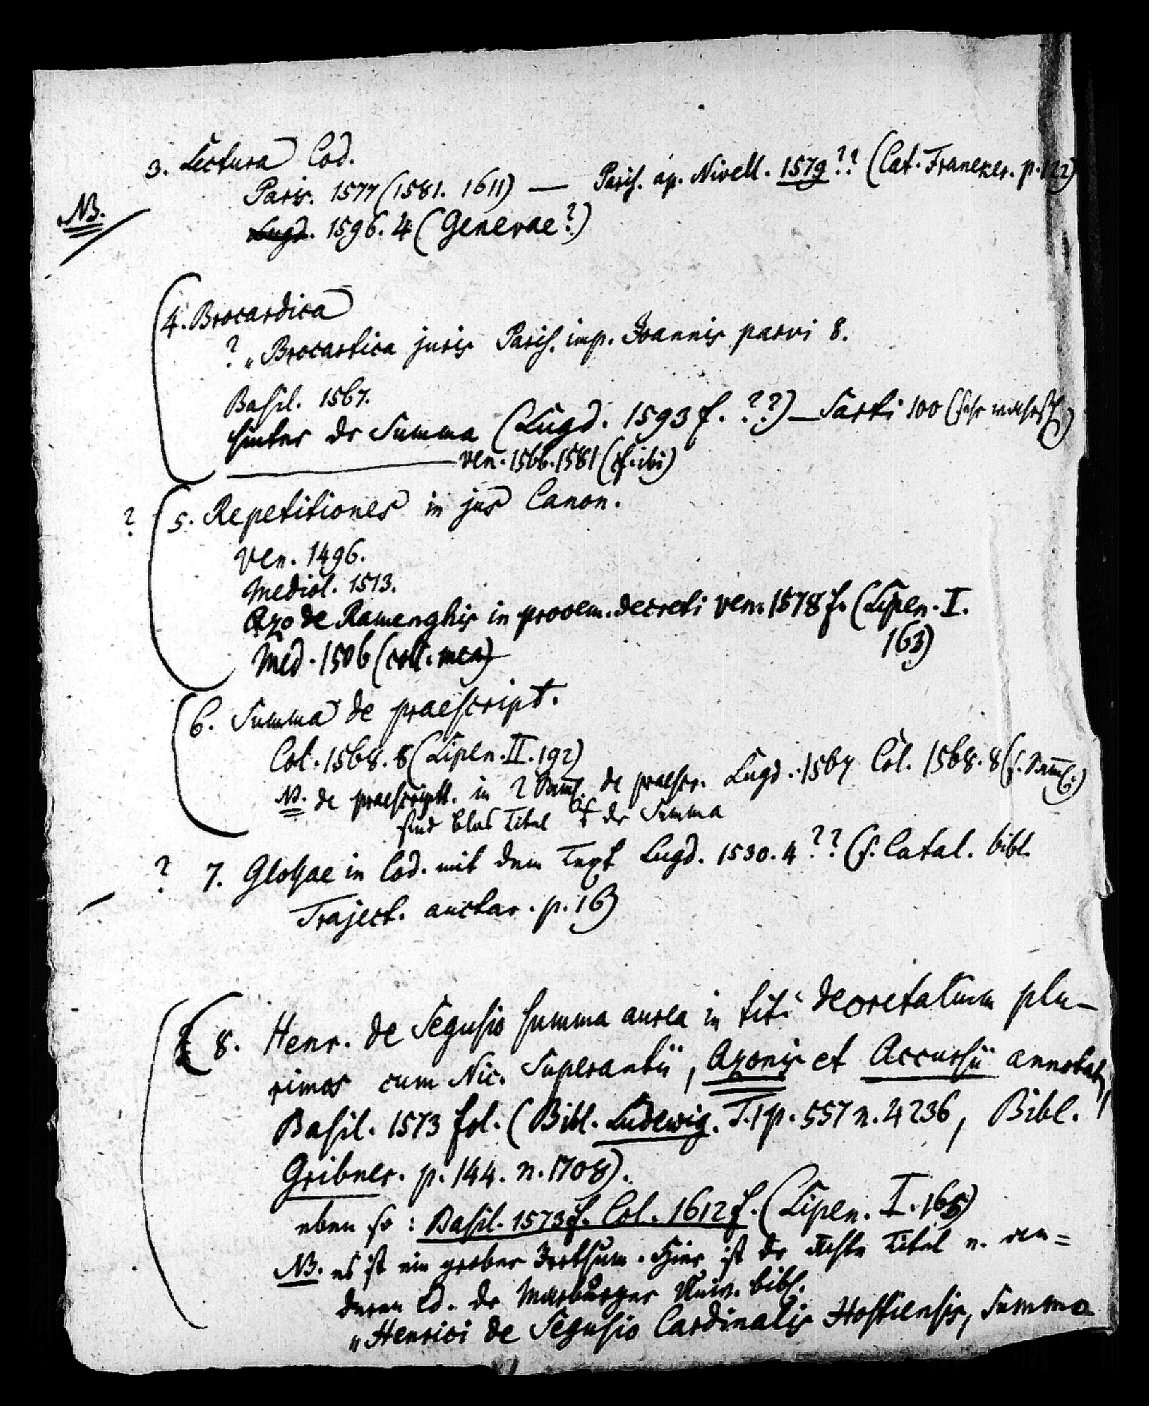 3. Lectura Cod.
Paris. 1577 (1581. 1611) — Paris. ap. Nivell. 1579 ?? (Cat. Franeker. p. 122)
NB.
Lugd. 1596. 4 (Genevae ?)
4. Brocardica
? „Brocardica juris Paris. imp. Joannis parvi 8.
Basil. 1567.
hinter der Summa (Lugd. 1593 f. ??) — Sarti 100 (sehr
ven. 1566. 1581 (f. ibi)
? 5. Repetitiones in jus Canon.
Ven. 1496.
Mediol. 1513.
Azo de Ramenghis in prooem. decreti ven. 1578 f. (Lipen. I.
163)
Med. 1506 (coll. mea)
6. Summa de praescript.
Col. 1568. 8 (Lipen. II. 192)
NB. de praescriptt. in 2 Samml. de praescr. Lugd. 1567 Col. 1568. 8 (s. Samml.)
sind blos Titel der Summa
? 7. Glossae in Cod. mit dem Text Lugd. 1530. 4 ?? (s. Catal. bibl.
Traject. auctar. p. 16)
8. Henr. de Segusio summa aurea in titt. decretalium plu-
rimos cum Nic. Superantii, Azonis et Accursii annotatt.,
Basil. 1573 fol. (Bibl. Ludewig. T. 1 p. 557 n. 4236, Bibl.
Gribner. p. 144. n. 1708).
eben so: Basil. 1573 f. Col. 1612 f. (Lipen. I. 165)
NB. es ist ein grober Irrthum. Hier ist der ächte Titel
deren Ed. der Marburger Univ. bibl.
„Henrici de Segusio Cardinalis Hostiensis, Summa